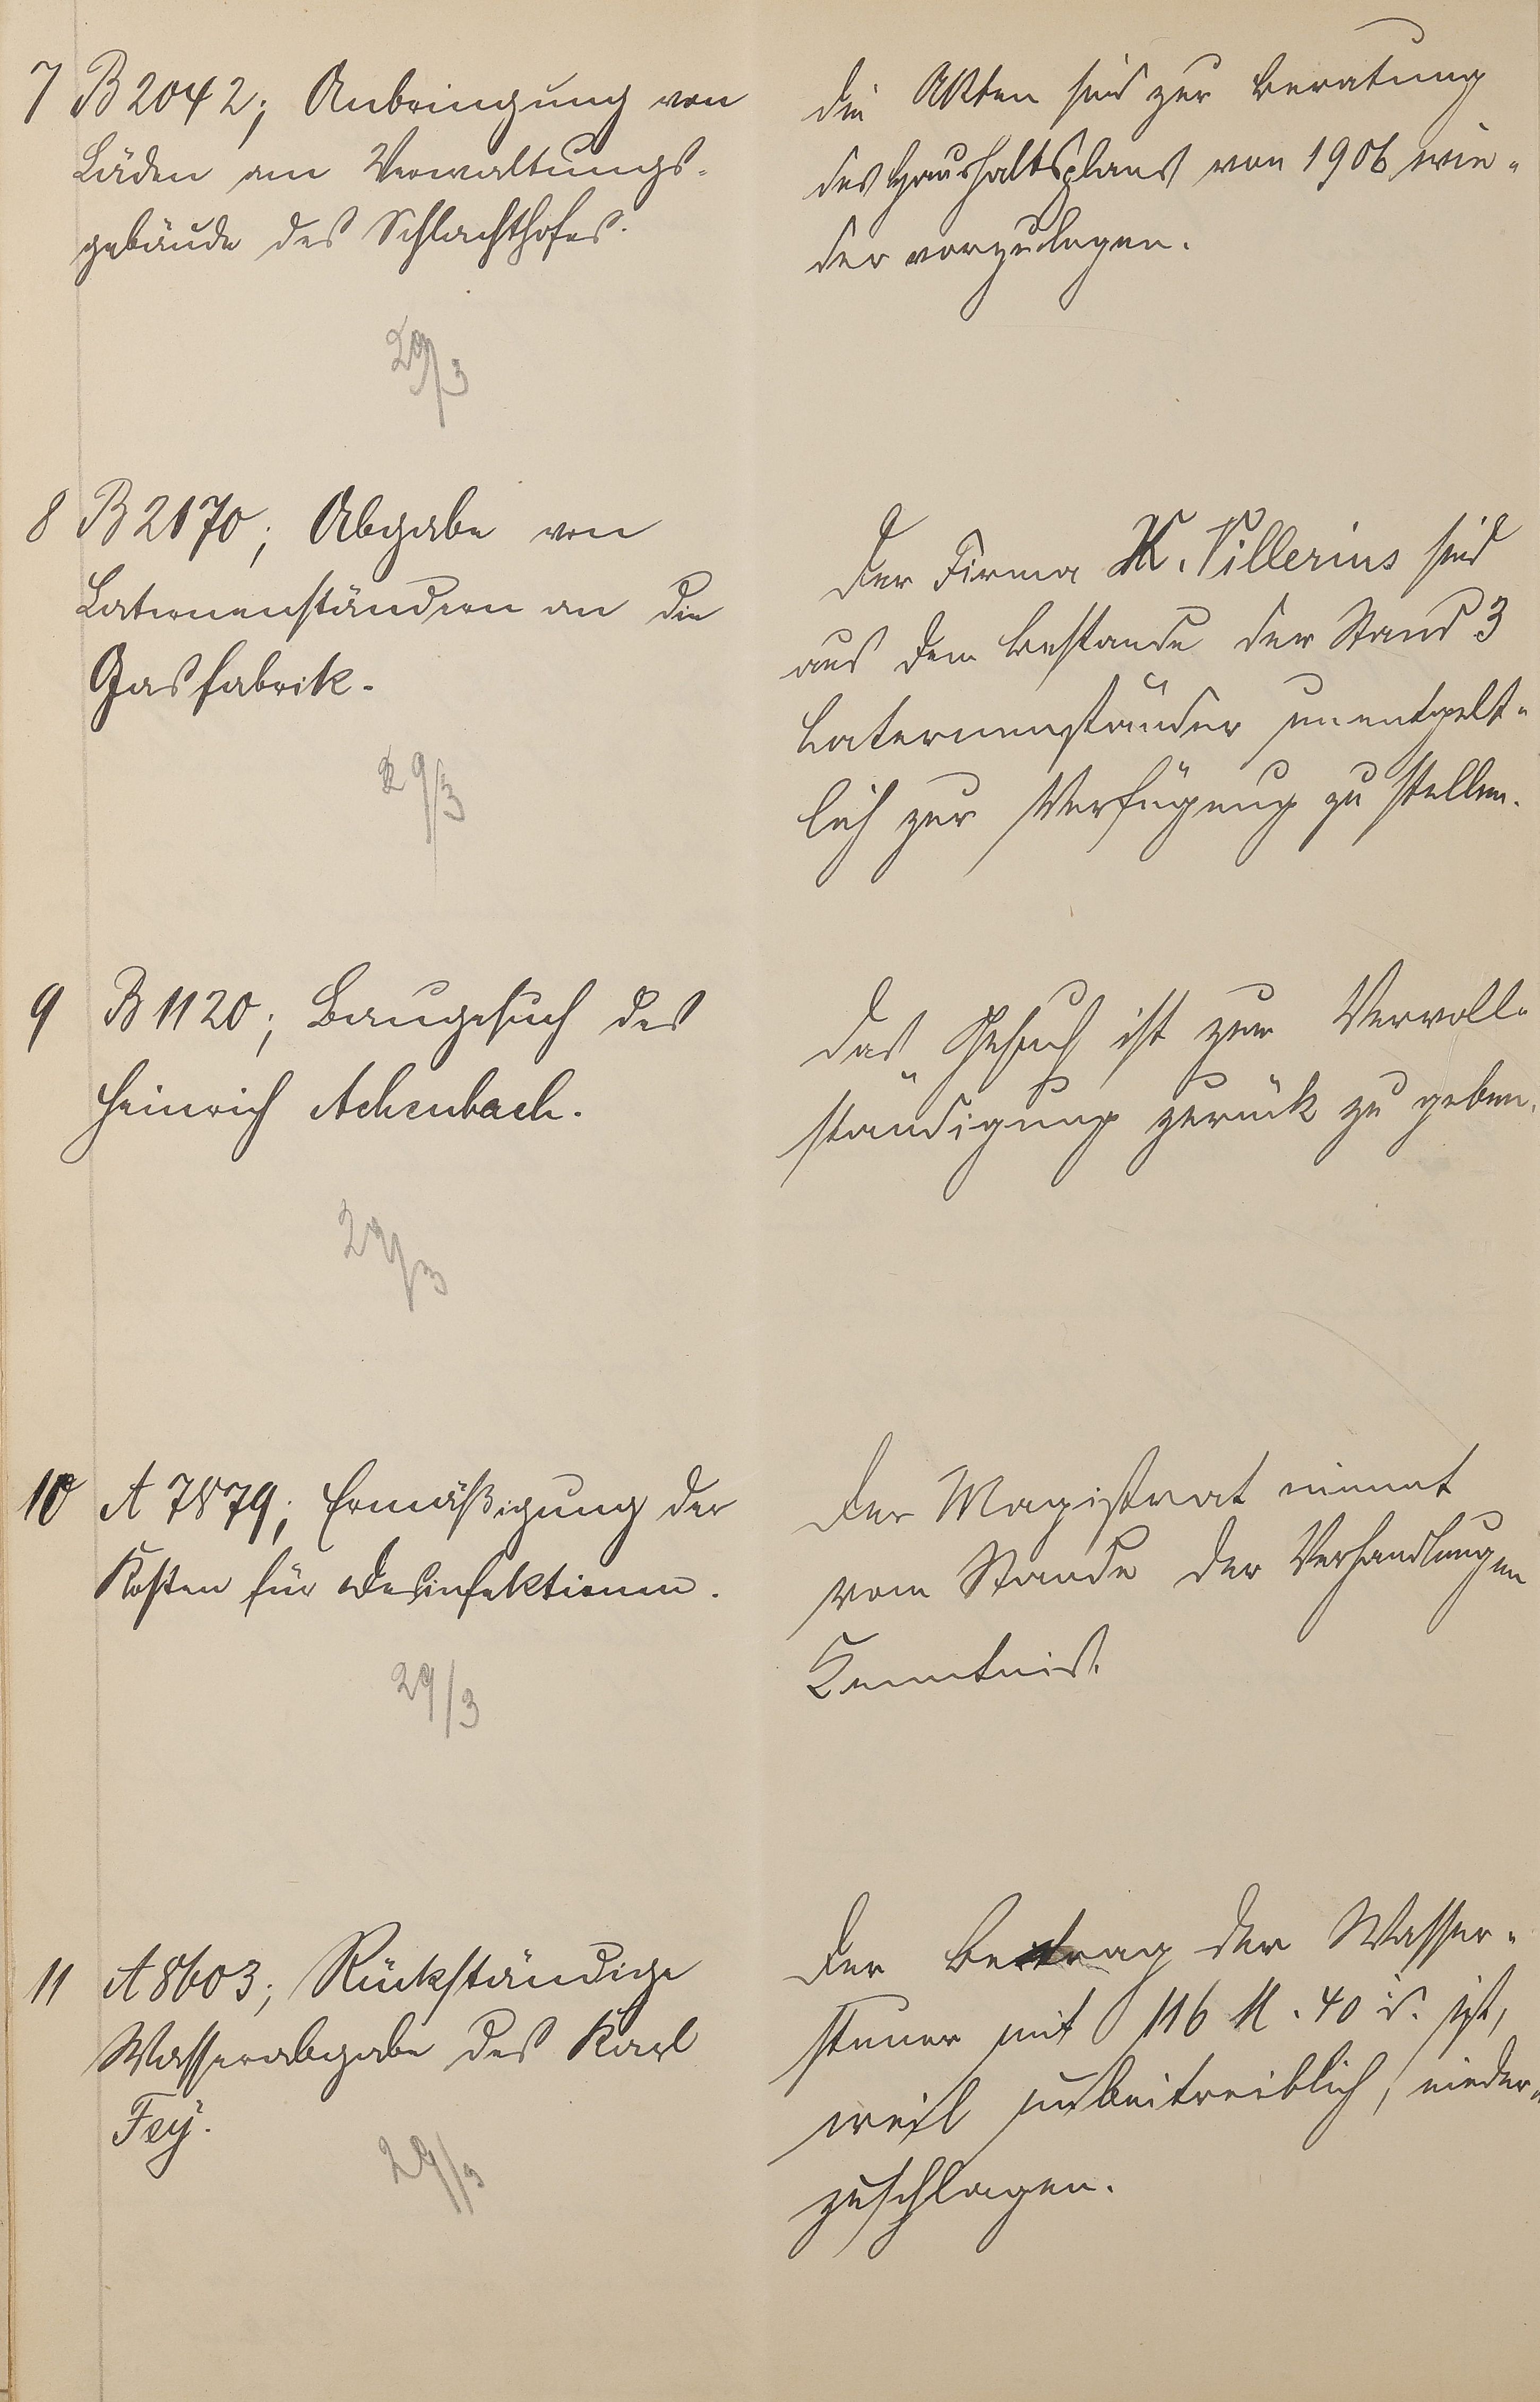 7 B 2042; Anbringung von
Läden am Verwaltungs-
gebäude des Schlachthofes.
29/3
die Akten sind zur Beratung
des Haushaltsplans von 1906 wie-
der vorzulegen.
8 B 2170; Abgabe von
Laternenständern an die
Gasfabrik.
29/3
Der Firma K. Villerius sind
aus dem Bestande der Stand 3
Laternenständer unentgelt-
lich zur Verfügung zu stellen.
9 B 1120; Baugesuch des
Heinrich Achenbach.
29/3
Das Gesuch ist zur Vervoll-
ständigung zurück zu geben.
10 A 7879; Ermäßigung der
Kosten für Desinfektionen.
29/3
Der Magistrat nimmt
vom Stande der Verhandlungen
Kenntnis.
11 A 8603; Rückständige
Wasserabgabe des Karl
Fey.
29/3
Der Betrag der Wasser-
steuer mit 116 M. 40 d. ist,
weil unbeitreiblich, nieder-
zuschlagen.